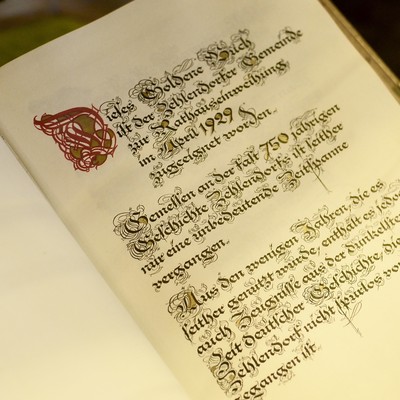 Dieses Goldene Buch
ist der Zehlendorfer Gemeinde
zur Rathauseinweihung
im April 1929
zugeeignet worden.
Gemessen an der fast 750 jährigen
Geschichte Zehlendorfs ist seither
nur eine unbedeutende Zeitspanne
vergangen.
Aus den wenigen Jahren, die es
seither genutzt wurde, enthält es jedoch
auch Zeugnisse aus der dunkelsten
Zeit deutscher Geschichte, die
Zehlendorf nicht spurlos vor
gegangen ist.